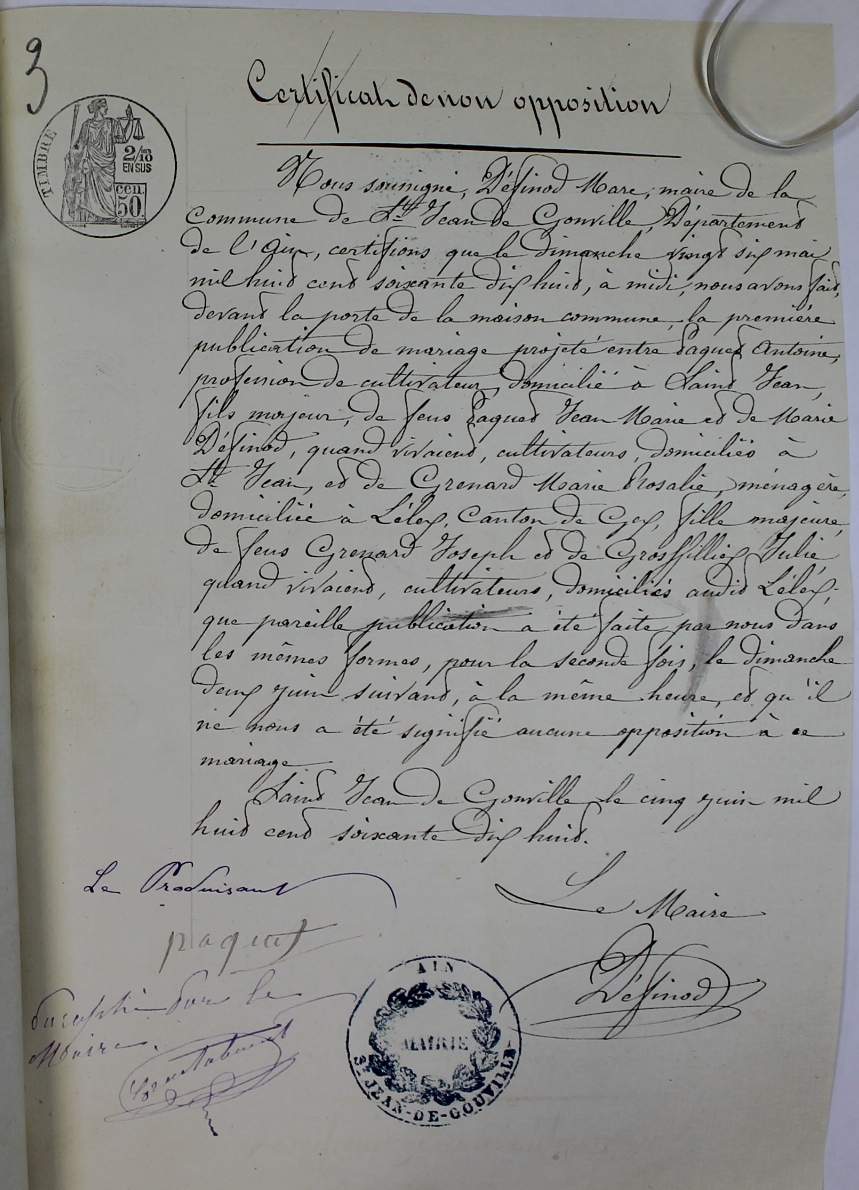 3
Certificat de non opposition
TIMBRE
2/10
EN SUS
50 CEN
Nous soussigné, Définod Marc, maire de la
commune de St Jean de Gonville, Département
de l'Ain, certifions que le dimanche vingt six mai
mil huit cent soixante dix huit, à midi, nous avons fait,
devant la porte de la maison commune, la première
publication de mariage projeté entre Paquet Antoine,
profession de cultivateur, domicilié à Saint Jean,
fils majeur, de feus Paquet Jean Marie et de Marie
Définod, quand vivaient, cultivateurs, domiciliés à
St Jean, et de Grenard Marie Rosalie, ménagère,
domiciliée à Lélex, Canton de Gex, fille majeure,
de feus Grenard Joseph et de Grosfilliex Julie,
quand vivaient, cultivateurs, domiciliés audit Lélex;
que pareille publication a été faite par nous dans
les mêmes formes, pour la seconde fois, le dimanche
deux juin suivant, à la même heure, et qu'il
ne nous a été signifié aucune opposition à ce
mariage.
Saint Jean de Gonville, le cinq juin mil
huit cent soixante dix huit.
Le Produisant
Le Maire
paquet
Définod
par le
Maire.
AIN
MAIRIE
ST JEAN-DE-GONVILLE